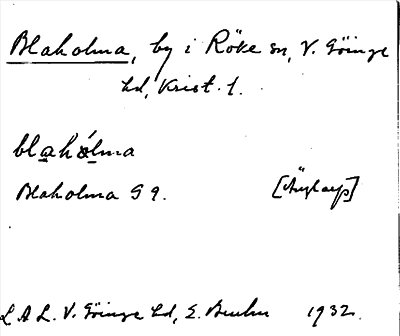 Blaholma, by i Röke sn, V. Göinge
hd, Krist. l.
blahólma
Blaholma S 9.
L A L. V. Göinge hd, E. 1932.